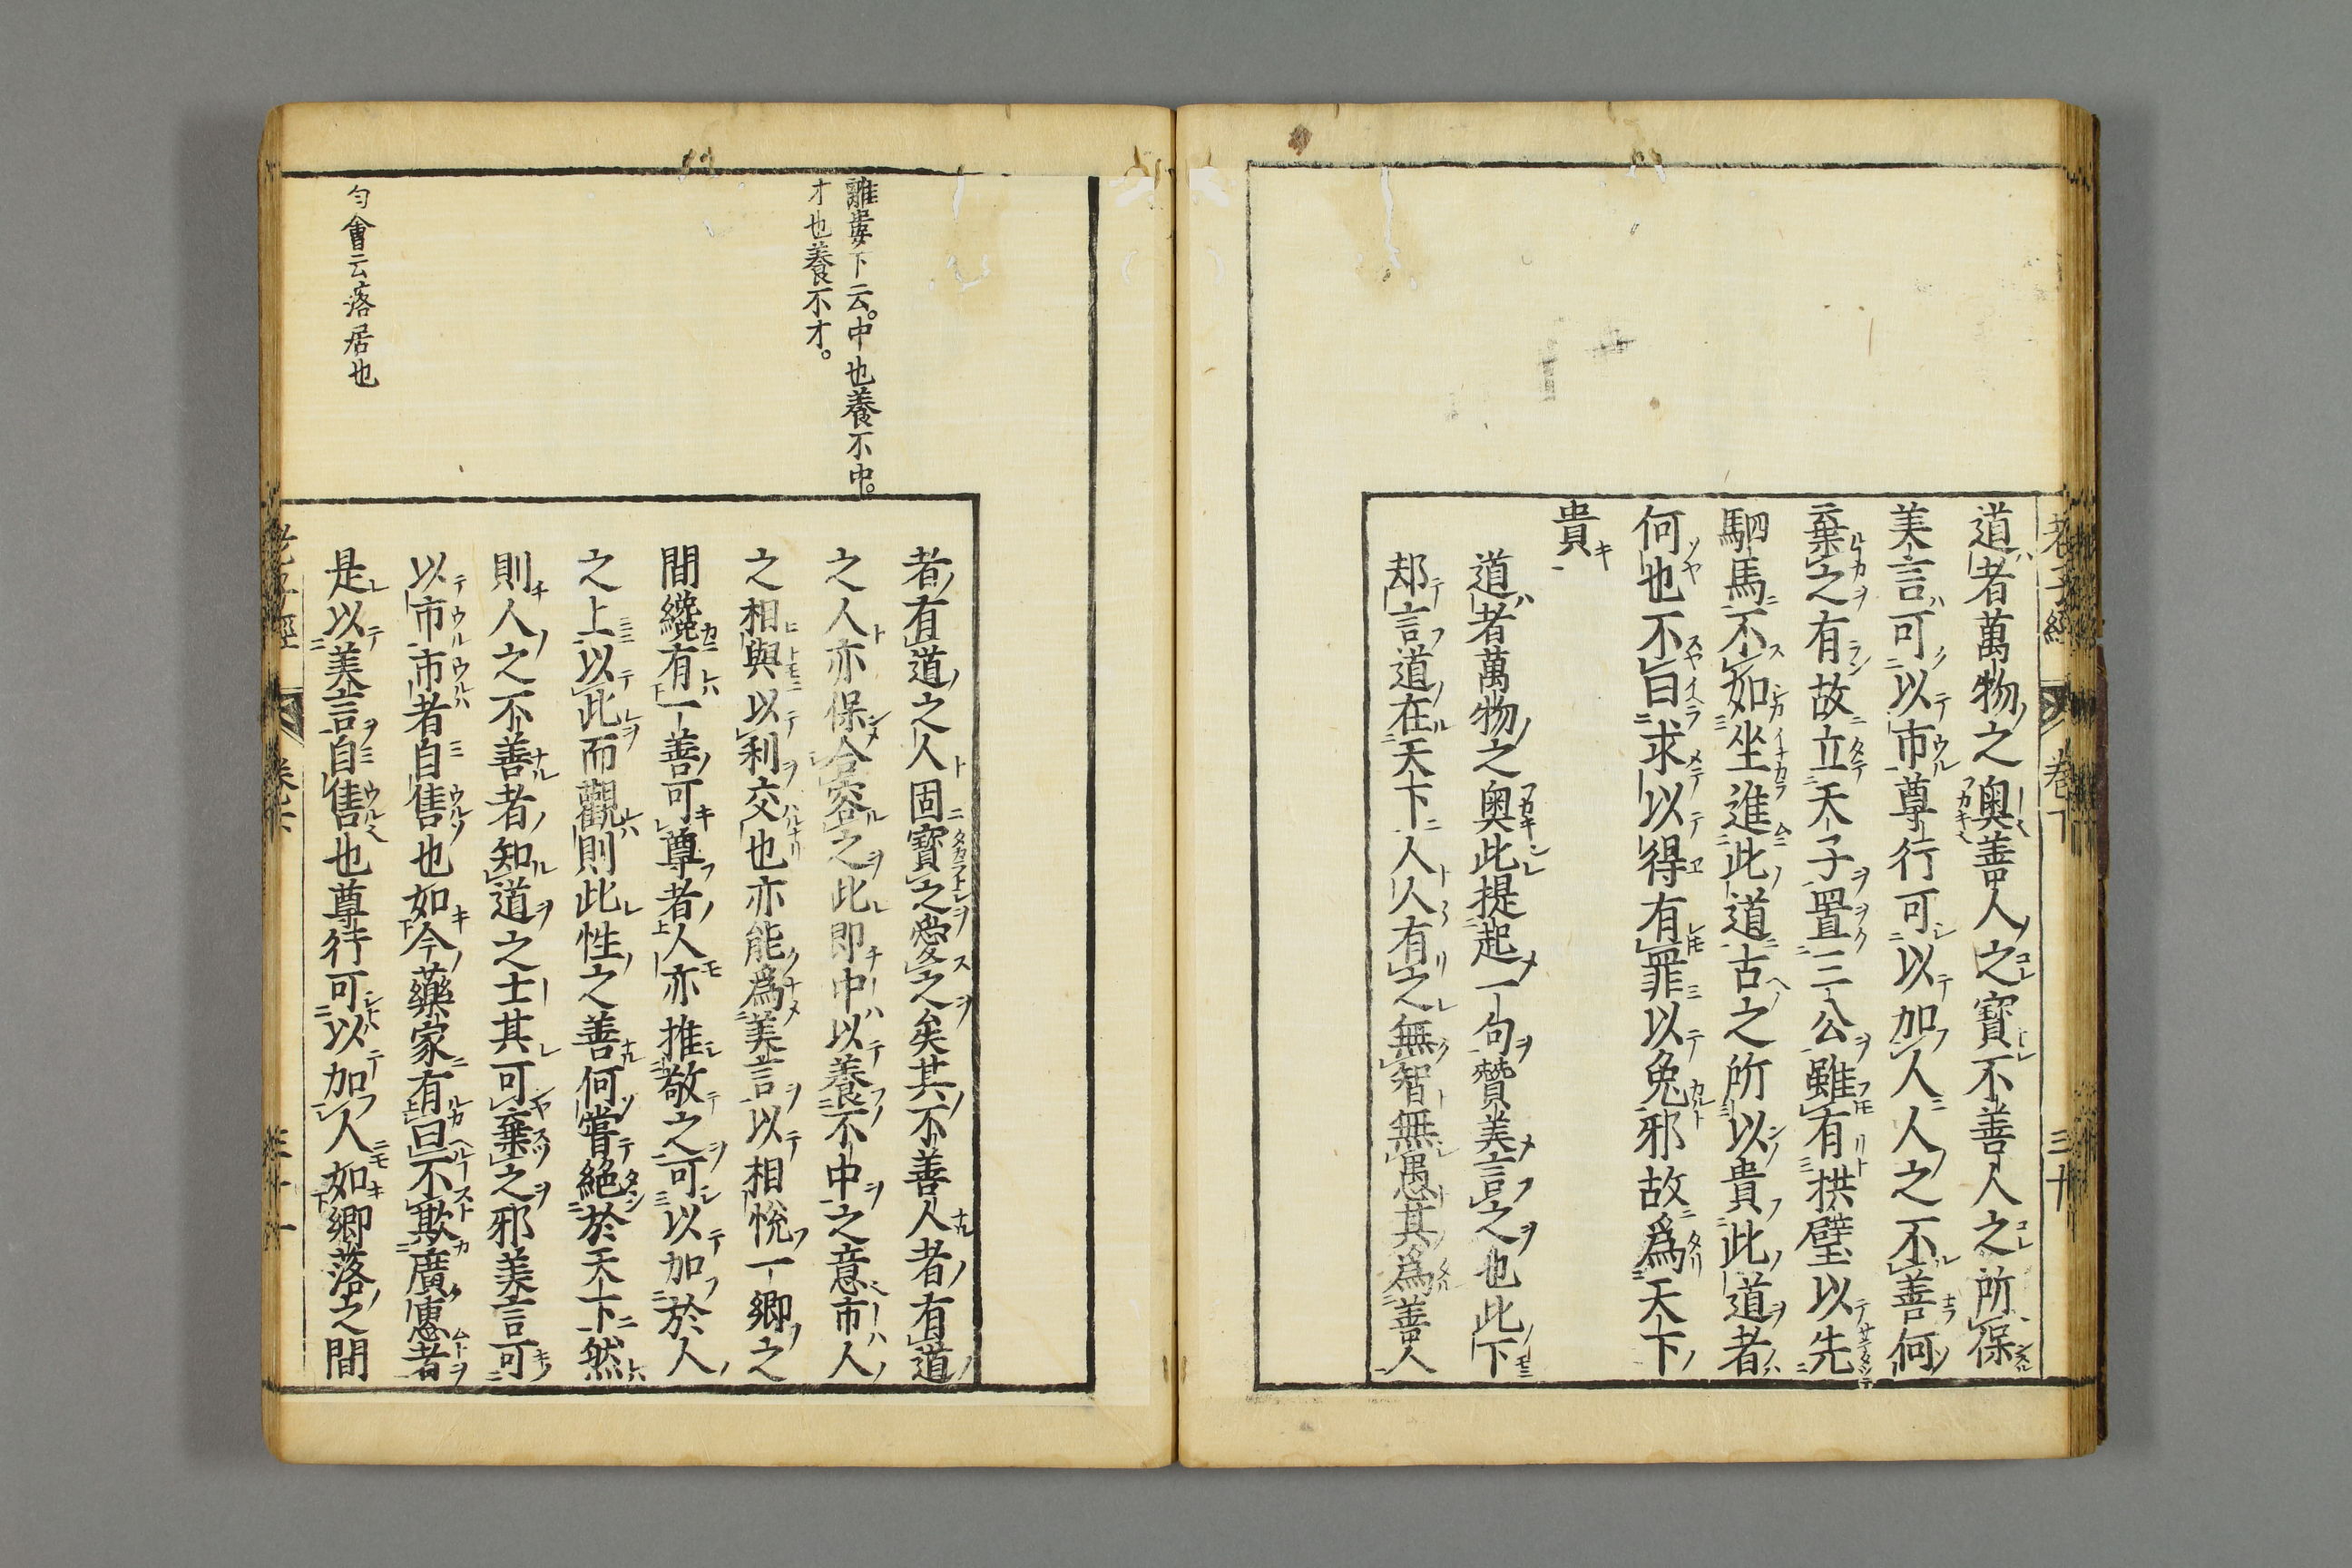 道者萬物之奧善人之寶不善人之所保
美言可以市尊行可以加人人之不善何
棄之有故立天子置三公雖有拱璧以先
駟馬不如坐進此道古之所以貴此道者
何也不曰求以得有罪以免邪故爲天下
貴
道者萬物之奧此提起一句贊美言之也此下
却言道在天下人人有之無智無愚其爲善人
離婁下云。中也養不中。
才也養不才。
勻會云落居也
者有道之人固寶之愛之矣其不善人者有道
之人亦保合容之此即中以養不中之意市人
之相與以利交也亦能爲美言以相悅一鄉之
間纔有一善可尊者人亦推敬之可以加於人
之上以此而觀則此性之善何嘗絕於天下然
則人之不善者知道之士其可棄之邪美言可
以市市者自售也如今藥家有曰不欺廣惠者
是以美言自售也尊行可以加人如鄉落之間